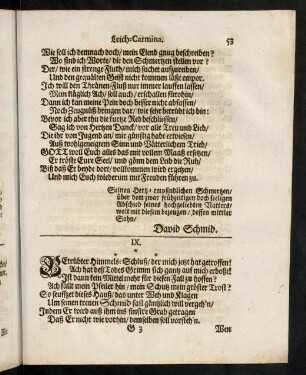 Leich-Carmina. 53
Wie soll ich demnach doch/ mein Elend gnug beschreiben?
Wo find ich Worte/ die den Schmertzen stellen vor?
Der/ wie ein strenge Fluth/ mich suchet aufzureiben/
Und den gequälten Geist nicht kommen läßt empor.
Ich will den Thränen-Fluß nur immer lauffen lassen/
Mein kläglich Ach/ soll auch/ erschallen sterohin/
Dann ich kan meine Pein doch besser nicht abfassen/
Noch Zeugnüß bringen dar/ wie sehr betrübt ich bin:
Bevor ich aber thu die kurtze Red beschliessen/
Sag ich von Hertzen Danck/ vor alle Treu und Lieb/
Die ihr von Jugend an/ mir günstig habt erwiesen/
Auß wohlgeneigtem Sinn und Vätterlichem Trieb/
GOTT woll Euch alles das mit vollem Maaß ersetzen/
Er tröste Eure Seel/ und gönn dem Leib die Ruh/
Biß daß Er beyde dort/ vollkommen wird ergetzen/
Und mich Euch wiederum mit Freuden führen zu.
Seinen Hertz-empfindlichen Schmertzen/
über dem zwar frühzeitigen doch seeligen
Abschied seines hochgeliebten Vatters/
wolt mit diesem bezeugen/ dessen mittler
Sohn/
David Schmid.
IX.
BEtrübter Himmels-Schluß/ der mich jetzt hat getroffen!
Ach hat deß Todes Grimm sich gantz auf mich erbost!
Ist dann kein Mittel mehr für diesen Fall zu hoffen?
Ach fällt mein Pfeiler hin/ mein Schutz mein gröster Trost?
So seuffzet dieses Hauß/ das unter Weh und Klagen
Um seinen treuen Schmid fast gäntzlich will vergeh'n/
Indem Er wird auß ihm ins finstre Grab getragen
Daß Er nicht wie vorhin/ demselben soll vorsteh'n.
G 3 Wen